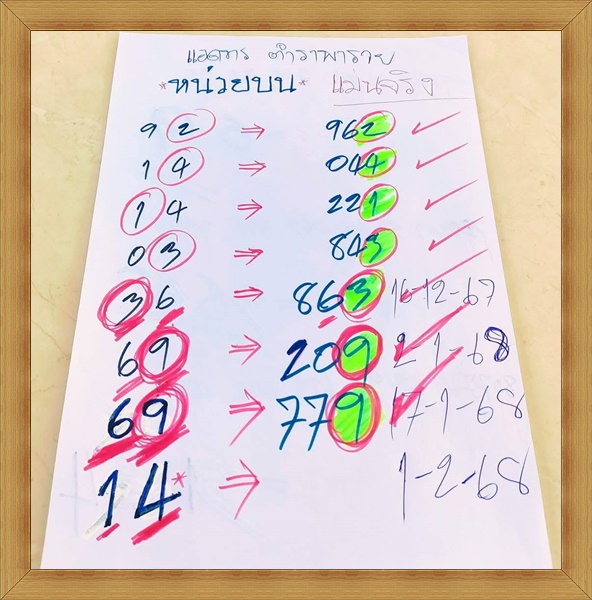 แอดการ ตำราพารวย
*หน่วยบน* แม่นจริง
92 ⇒ 962 ✓
14 ⇒ 044 ✓
14 ⇒ 221 ✓
03 ⇒ 843 ✓
36 ⇒ 863 16-12-67
69 ⇒ 209 2-1-68
69 ⇒ 779 17-1-68
14* ⇒ 1-2-68